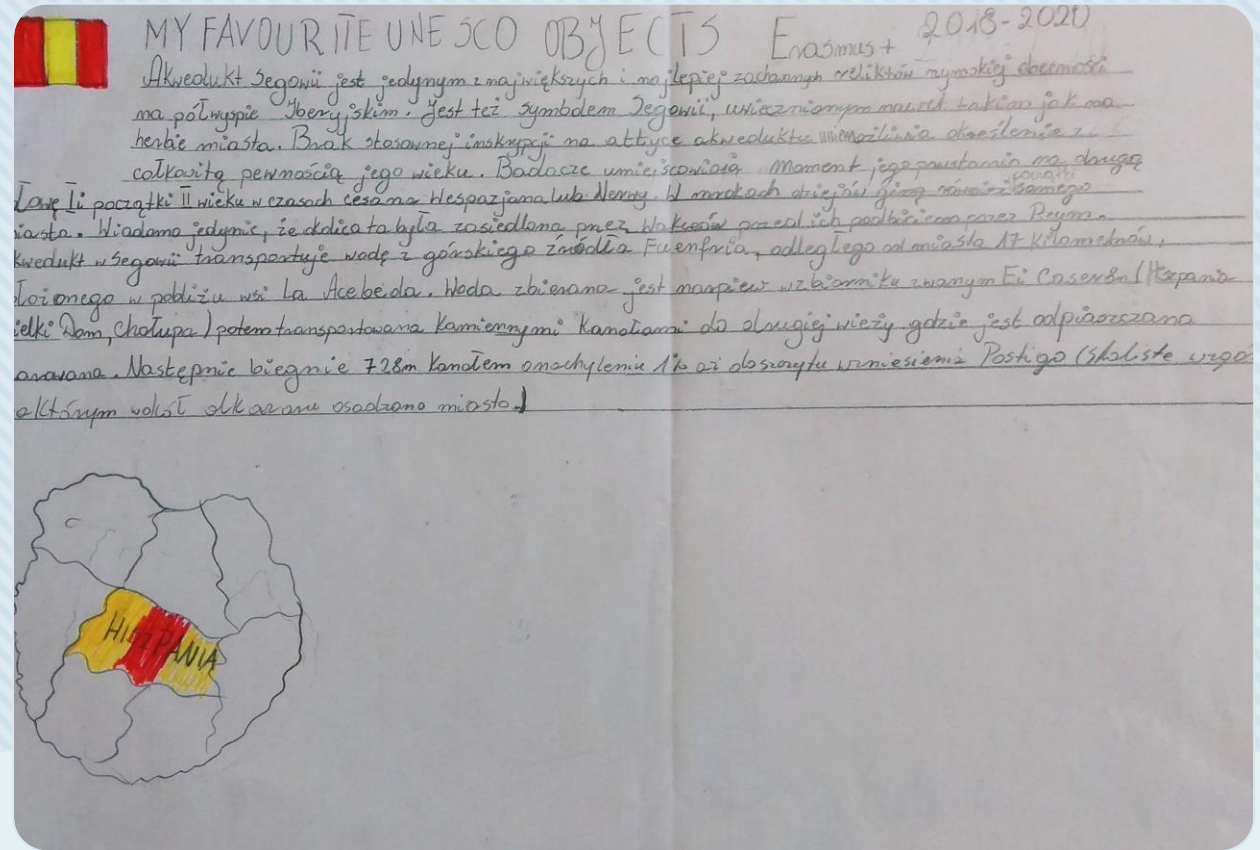 MY FAVOURITE UNESCO OBJECTS Erasmus+ 2018-2020
Akwedukt Segowii jest jedynym z największych i najlepiej zachannych reliktów rzymskiej obecności
na półwyspie Iberyjskim. Jest też symbolem Segowii, uwiecznionym nawet takim jak na
herbie miasta. Brak stosownej inskrypcji na attyce akweduktu uniemożliwia określenie z
całkowitą pewnością jego wieku. Badacze umiejscowiają moment jego powstania na drugą
łowę I i początki II wieku w czasach cesarza Wespazjana lub Nerwy. W mrokach dziejów giną również początki samego
iasta. Wiadomo jedynie, że okolica ta była zasiedlona przez Wakceów przed ich podbiciem przez Rzym.
kwedukt w Segowii transportuje wodę z górskiego źródła Fuenfría, odległego od miasta 17 kilometrów,
łożonego w pobliżu wsi La Acebeda. Woda zbierana jest najpierw w zbiorniku zwanym El Caserón (Hiszpania
ielki Dom, Chałupa) potem transportowana kamiennymi kanałami do drugiej wieży gdzie jest odpiaszczana
Następnie biegnie 728m kanałem o nachyleniu 1% aż do szczytu wzniesienia Postigo (skaliste wzgó
a którym wokół alkazaru osadzono miasto.
HISZPANIA